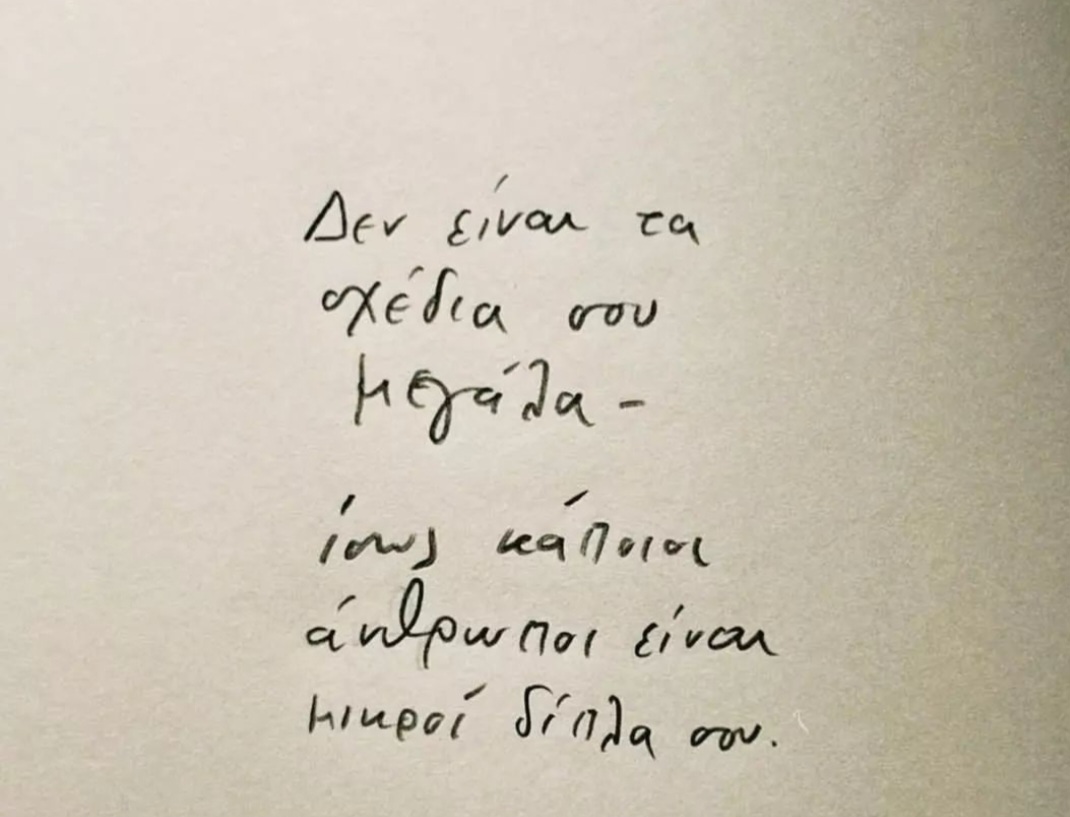 Δεν είναι τα
σχέδια σου
μεγάλα -
ίσως κάποιοι
άνθρωποι είναι
μικροί δίπλα σου.